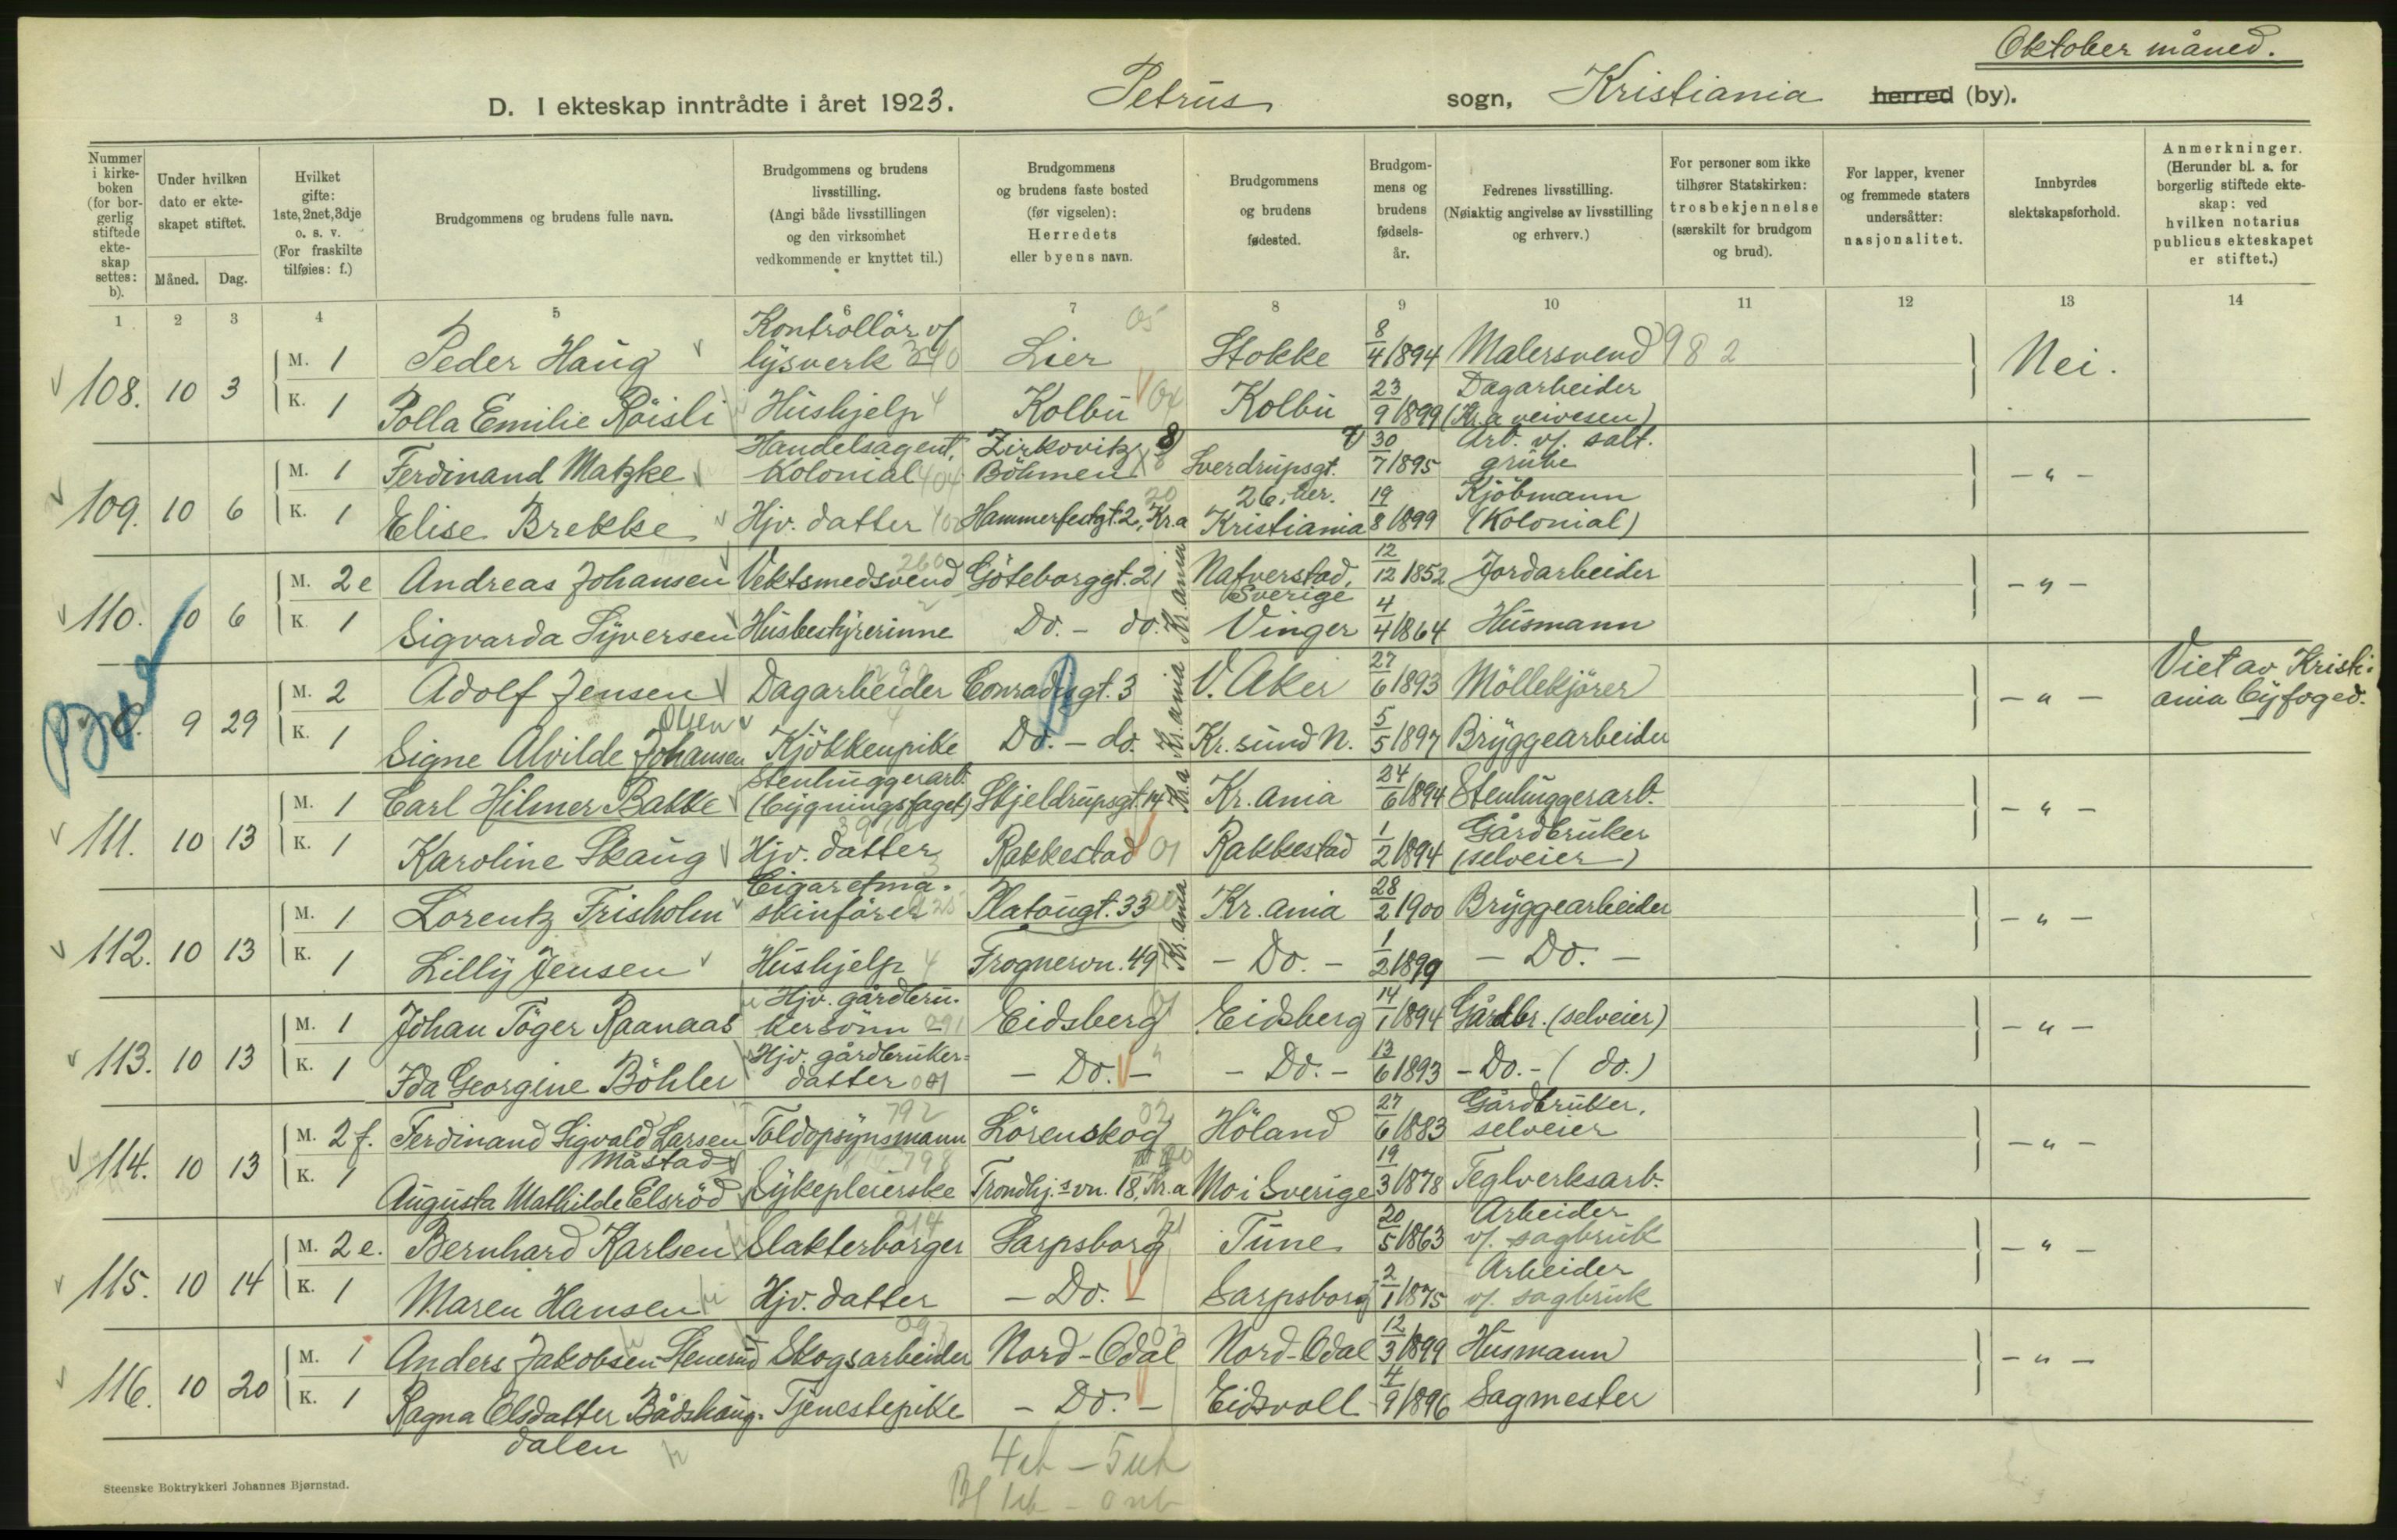 Oktober måned.
D. I ekteskap inntrådte i året 1923. Petrus sogn, Kristiania herred (by).
Nummer i kirke-boken (for bor-gerlig stiftede ekte-skap settes: b).
Under hvilken dato er ekte-skapet stiftet.
Måned. Dag.
Hvilket gifte: 1ste, 2net, 3dje o. s. v. (For fraskilte tilføies: f.)
Brudgommens og brudens fulle navn.
Brudgommens og brudens livsstilling. (Angi både livsstillingen og den virksomhet vedkommende er knyttet til.)
Brudgommens og brudens faste bosted (før vigselen): Herredets eller byens navn.
Brudgommens og brudens fødested.
Brudgom-mens og brudens fødsels-år.
Fedrenes livsstilling. (Nøiaktig angivelse av livsstilling og erhverv.)
For personer som ikke tilhører Statskirken: trosbekjennelse (særskilt for brudgom og brud).
For lapper, kvener og fremmede staters undersåtter: nasjonalitet.
Innbyrdes slektskapsforhold.
Anmerkninger. (Herunder bl. a. for borgerlig stiftede ekte-skap: ved hvilken notarius publicus ekteskapet er stiftet.)
1 2 3 4 5 6 7 8 9 10 11 12 13 14
108. 10 3 M. 1 Peder Haug Kontrollör v/ lysverk 340 Lier 05 Stokke 8/4 1894 Malersvend 982 Nei.
K. 1 Polla Emilie Röisli Hushjelp 4 Kolbu 04 Kolbu 23/9 1899 Dagarbeider (Kr.a veivesen)
109. 10 6 M. 1 Ferdinand Matzke Handelsagent, Kolonial 404 Zirkovitz Böhmen 8 Sverdrupsgt. 30/7 1895 Arb. v/. salt. grube - " -
K. 1 Elise Brekke Hjv. datter Hammerfestgt. 2, Kr.a 26, her. Kristiania 19/8 1899 Kjöbmann (Kolonial)
110. 10 6 M. 2 e Andreas Johansen Vektsmedsvend 260 Göteborggt. 21 Kr.ania Nafverstad, Sverige 12/12 1852 Jordarbeider - " -
K. 1 Sigvarda Syversen Husbestyrerinne Do. - do. Vinger 4/4 1864 Husmann
9 29 M. 2 Adolf Jensen Dagarbeider Conradisgt. 3 Kr.ania V. Aker 27/6 1893 Möllekjörer - " - Viet av Kristi-ania byfoged.
K. 1 Signe Alvilde Johansen Olsen Kjökkenpike Do. - do. Kr.sund N. 5/5 1897 Bryggearbeider
111. 10 13 M. 1 Carl Hilmer Bakke Stenhuggerarb. (bygningsfaget) Skjeldrupsgt. 14 Kr.a Kr.ania 24/6 1894 Stenhuggerarb. - " -
K. 1 Karoline Skaug Hjv. datter Rakkestad 01 Rakkestad 1/2 1894 Gårdbruker (selveier)
112. 10 13 M. 1 Lorentz Frisholm Cigaretma-skinförer Platougt. 33 Kr.ania Kr.ania 28/2 1900 Bryggearbeider - " -
K. 1 Lilly Jensen Hushjelp 4 Frognervn. 49 - Do. - 1/2 1899 - Do. -
113. 10 13 M. 1 Johan Töger Raanaas Hjv. gårdbru-kersönn 091 Eidsberg 01 Eidsberg 14/1 1894 Gårdbr. (selveier) - " -
K. 1 Ida Georgine Böhler Hjv. gårdbruker-datter 001 - Do. - - Do. - 13/6 1893 - Do. - ( do. )
114. 10 13 M. 2 f. Ferdinand Sigvald Larsen Måstad Toldopsynsmann 792 Lörenskog 02 Höland 27/6 1883 Gårdbruker, selveier - " -
K. 1 Augusta Mathilde Elsröd Sykepleierske 798 Trondhj.s vn. 18, Kr.a Mo i Sverige 19/3 1878 Teglverksarb.
115. 10 14 M. 2 e. Bernhard Karlsen Slakterborger 214 Sarpsborg Tune 20/5 1863 Arbeider v/. sagbruk - " -
K. 1 Maren Hansen Hjv. datter - Do. - Sarpsborg 2/1 1875 Arbeider v/. sagbruk
116. 10 20 M. 1 Anders Jakobsen Stenerud Skogsarbeider Nord-Odal Nord-Odal 12/3 1899 Husmann - " -
K. 1 Ragna Olsdatter Bådshaug-dalen Tjenestepike - Do. - Eidsvoll 4/9 1896 Sagmester
Steenske Boktrykkeri Johannes Bjørnstad.